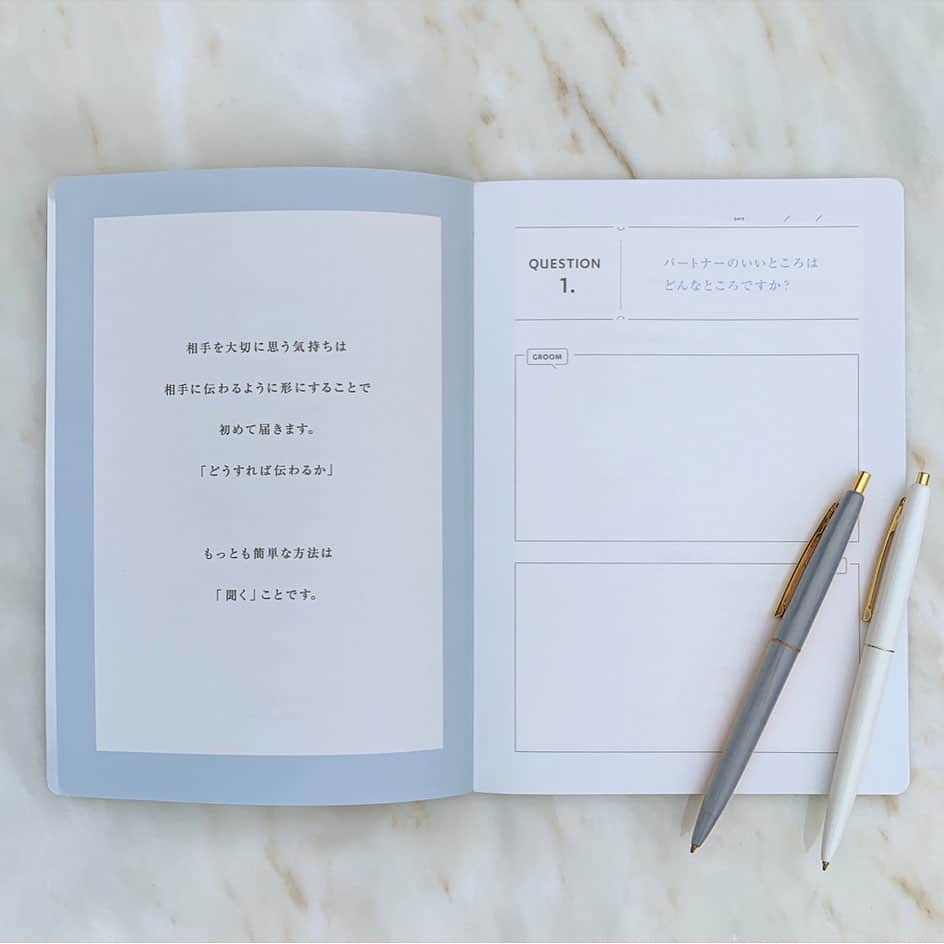 相手を大切に思う気持ちは
相手に伝わるように形にすることで
初めて届きます。
「どうすれば伝わるか」
もっとも簡単な方法は
「聞く」ことです。
DATE / /
QUESTION
1.
パートナーのいいところは
どんなところですか？
GROOM